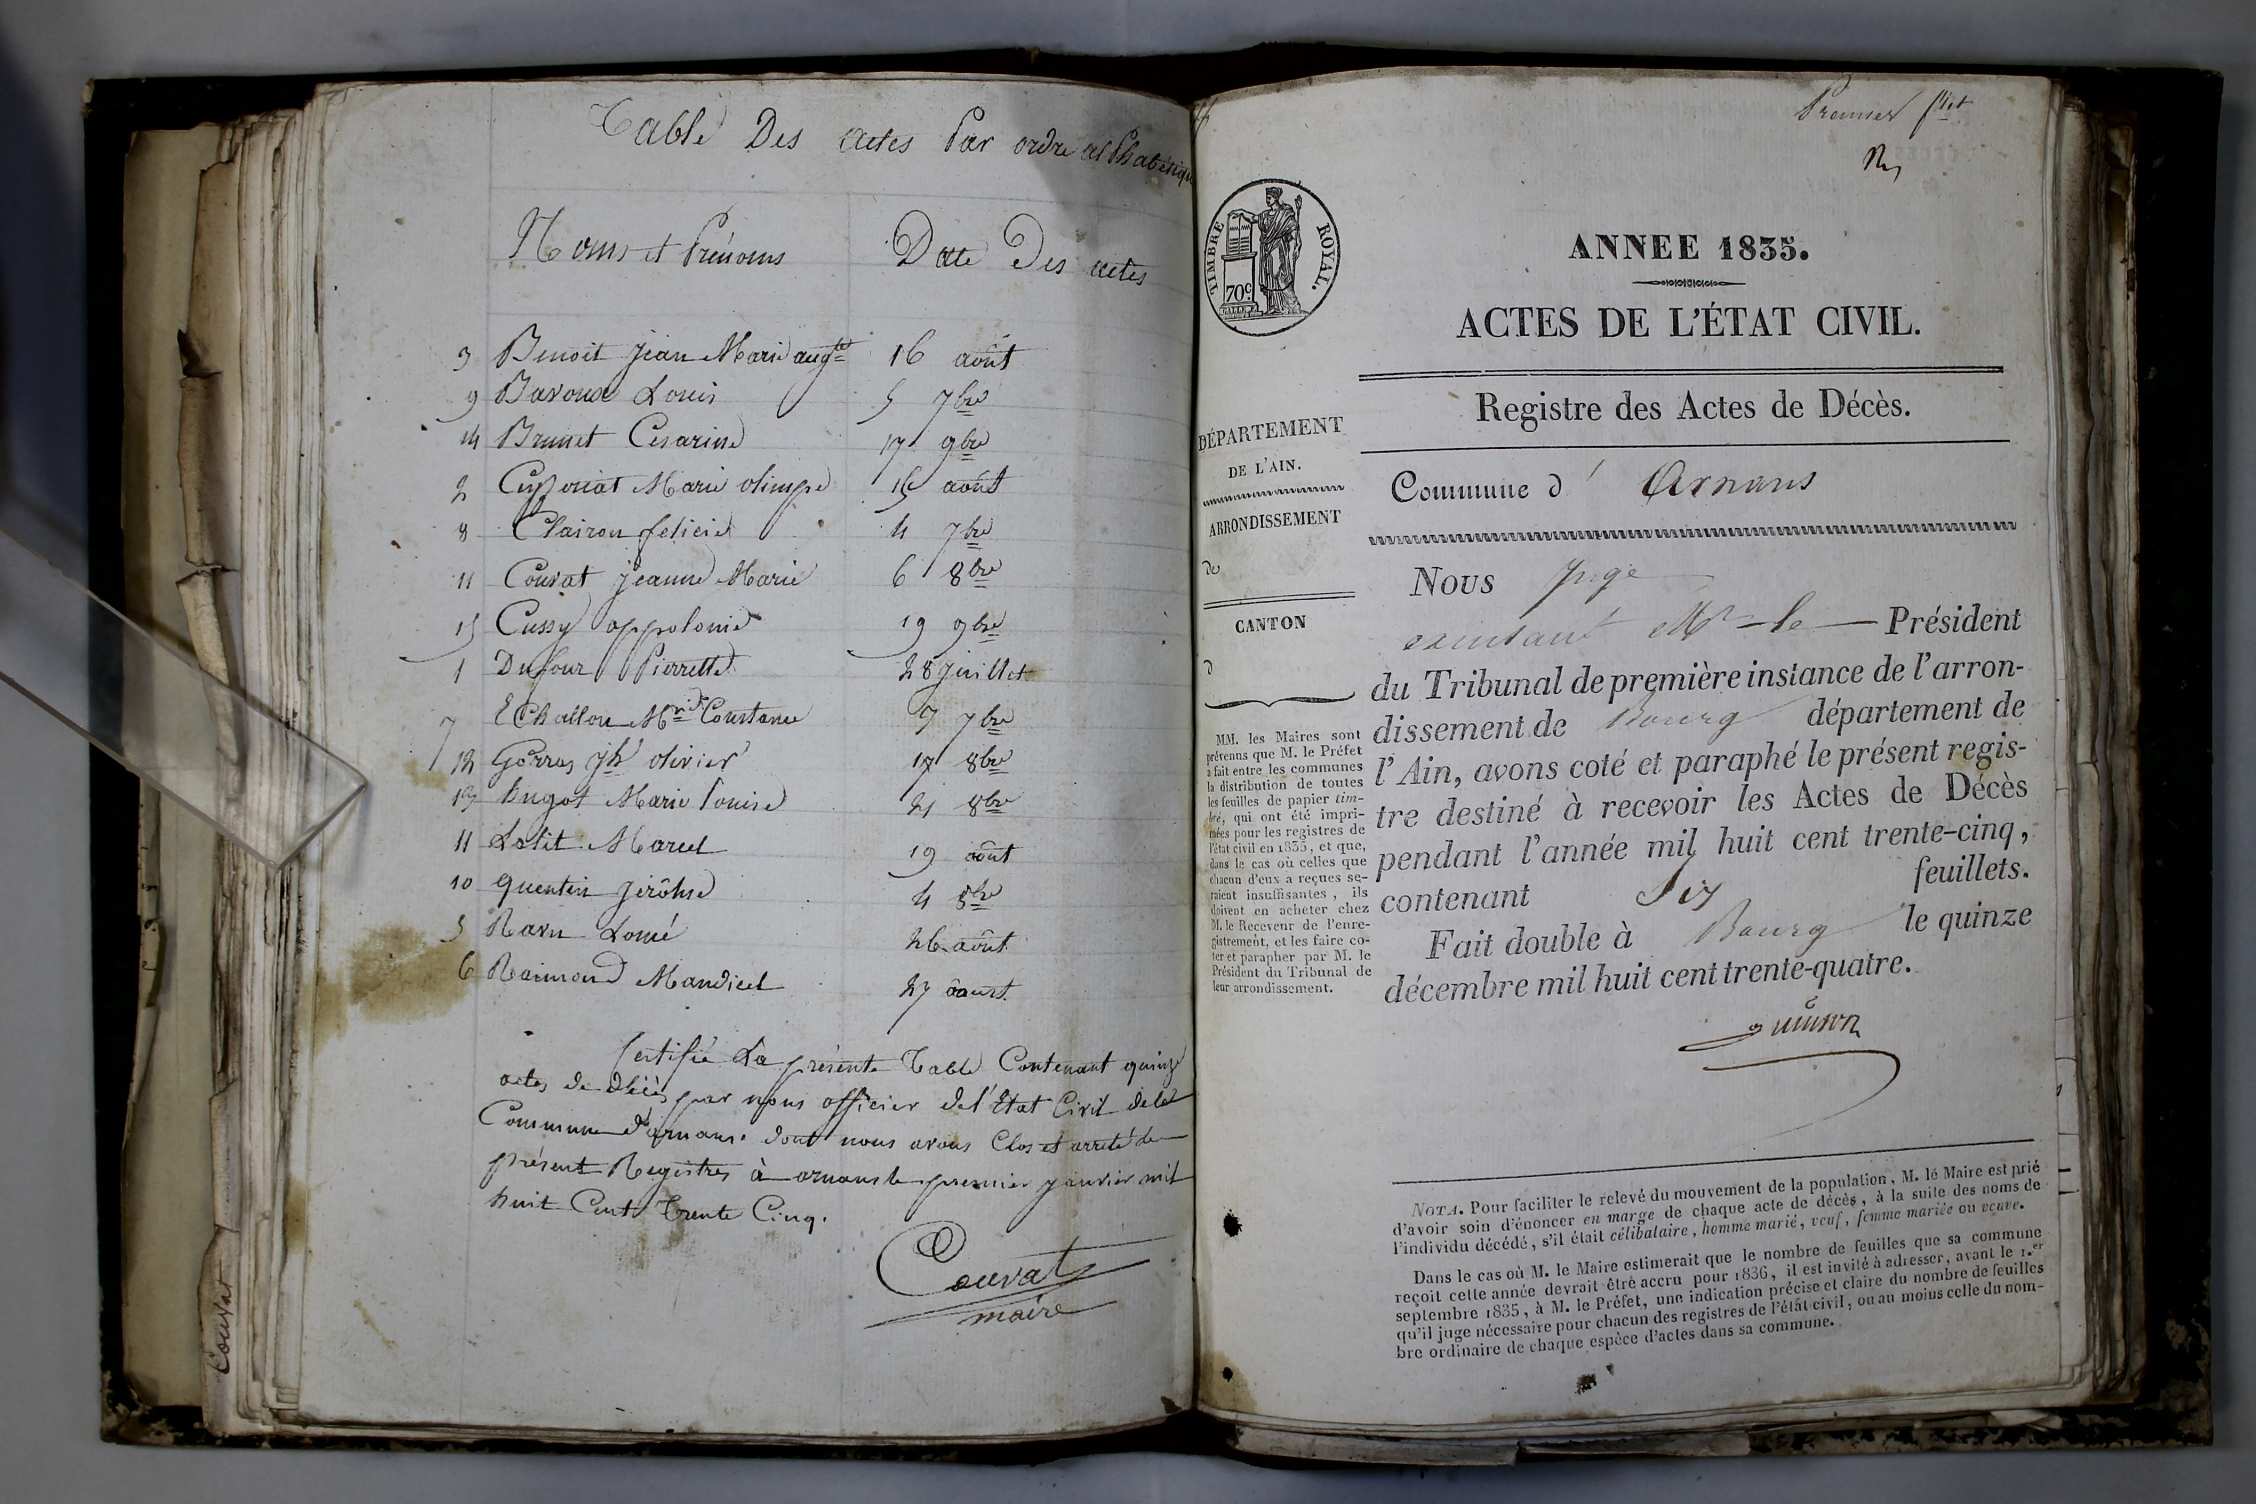 Table Des actes Par ordre alphabétique
Noms et Prénoms Date Des actes
3 Benoit jean Marie augte 16 août
9 Bavoux Louis 5 7bre
14 Brunet Cesarine 17 9bre
2 Marie olimpe août
8 Clairon felicie 4 7bre
11 Couvat jeanne Marie 6 8bre
15 Cussy appolonie 19 9bre
1 Dufour Pierrette 28 juillet
7 EChallon Mrie Constance 7bre
12 jh olivier 17 8bre
13 hugot Marie louise 21 8bre
11 Marcel 19 août
10 quentin jerôhse 4 8bre
5 Ravu 26 août
6 Raimond Mandicel 27 âoust
Certifié La présente Table Contenant quinze
actes de décès par nous officier de l'état Civil de la
Commune d'arnans. dont nous avons Clos et arreté le
présent Registres à arnans le premier janvier mil
huit Cent Trente Cinq.
Couvat
maire
Couvat
Premier flet
TIMBRE ROYAL.
70c.
ANNEE 1835.
ACTES DE L'ÉTAT CIVIL.
Registre des Actes de Décès.
DÉPARTEMENT
DE L'AIN.
ARRONDISSEMENT
de
CANTON
d
MM. les Maires sont
prévenus que M. le Préfet
a fait entre les communes
la distribution de toutes
les feuilles de papier tim-
bré, qui ont été impri-
mées pour les registres de
l'état civil en 1835, et que,
dans le cas où celles que
chacun d'eux a reçues se-
raient insuffisantes, ils
doivent en acheter chez
M. le Receveur de l'enre-
gistrement, et les faire co-
ter et parapher par M. le
Président du Tribunal de
leur arrondissement.
Commune d' Arnans
Nous juge
Mr le Président
du Tribunal de première instance de l'arron-
dissement de Bourg département de
l'Ain, avons coté et paraphé le présent regis-
tre destiné à recevoir les Actes de Décès
pendant l'année mil huit cent trente-cinq,
contenant Six feuillets.
Fait double à Bourg le quinze
décembre mil huit cent trente-quatre.
NOTA. Pour faciliter le relevé du mouvement de la population, M. le Maire est prié
d'avoir soin d'énoncer en marge de chaque acte de décès, à la suite des noms de
l'individu décédé, s'il était célibataire, homme marié, veuf, femme mariée ou veuve.
Dans le cas où M. le Maire estimerait que le nombre de feuilles que sa commune
reçoit cette année devrait être accru pour 1836, il est invité à adresser, avant le 1.er
septembre 1835, à M. le Préfet, une indication précise et claire du nombre de feuilles
qu'il juge nécessaire pour chacun des registres de l'état civil, ou au moins celle du nom-
bre ordinaire de chaque espèce d'actes dans sa commune.